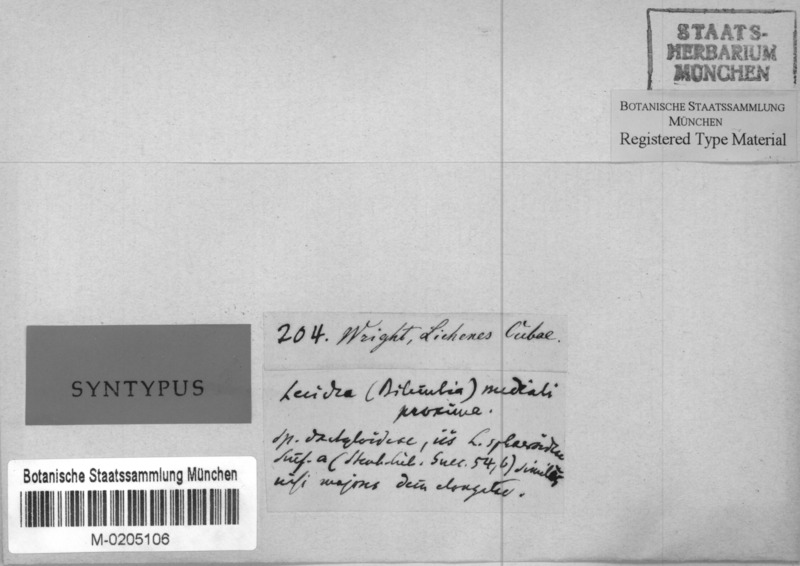 STAATS-
HERBARIUM
MÜNCHEN
BOTANISCHE STAATSSAMMLUNG
MÜNCHEN
Registered Type Material
204. Wright, Lichenes Cubae.
SYNTYPUS
Lecidea (Bilimbia) mediali
proxima.
sp. dactyloideae, iis L. sphaeroides
54, 6) similes
nisi majores elongatae.
Botanische Staatssammlung München
M-0205106